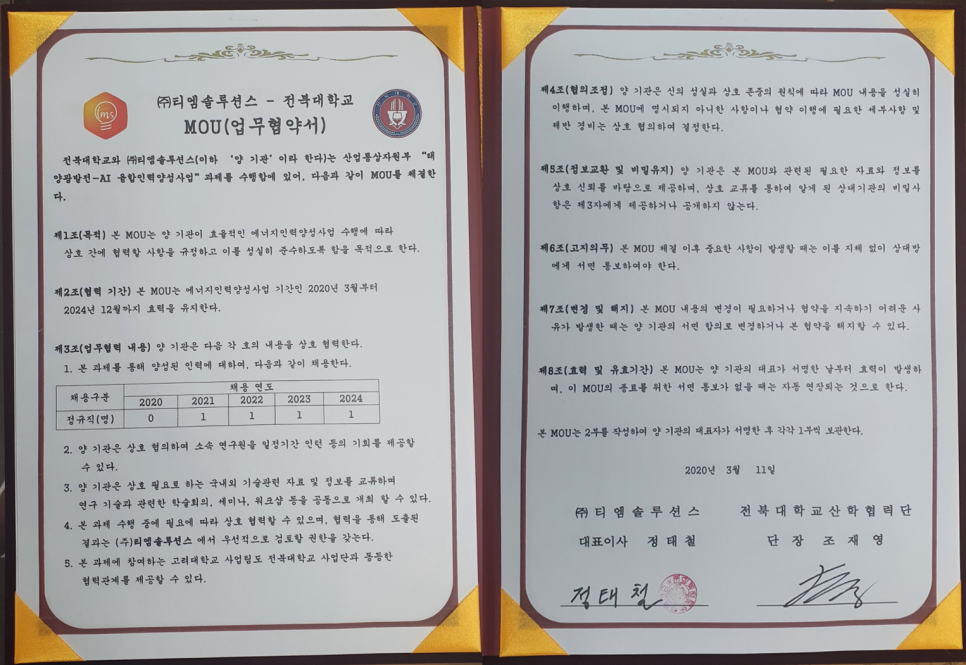 ㈜티엠솔루션스 - 전북대학교
MOU(업무협약서)
tms
전북대학교와 ㈜티엠솔루션스(이하 ‘양 기관’이라 한다)는 산업통상자원부 “태
양광발전-AI 융합인력양성사업” 과제를 수행함에 있어, 다음과 같이 MOU를 체결한
다.
제1조(목적) 본 MOU는 양 기관이 효율적인 에너지인력양성사업 수행에 따라
상호 간에 협력할 사항을 규정하고 이를 성실히 준수하도록 함을 목적으로 한다.
제2조(협력 기간) 본 MOU는 에너지인력양성사업 기간인 2020년 3월부터
2024년 12월까지 효력을 유지한다.
제3조(업무협력 내용) 양 기관은 다음 각 호의 내용을 상호 협력한다.
1. 본 과제를 통해 양성된 인력에 대하여, 다음과 같이 채용한다.
채용구분 채용 연도
2020 2021 2022 2023 2024
정규직(명) 0 1 1 1 1
2. 양 기관은 상호 협의하여 소속 연구원을 일정기간 인턴 등의 기회를 제공할
수 있다.
3. 양 기관은 상호 필요로 하는 국내외 기술관련 자료 및 정보를 교류하며
연구 기술과 관련한 학술회의, 세미나, 워크샵 등을 공동으로 개최 할 수 있다.
4. 본 과제 수행 중에 필요에 따라 상호 협력할 수 있으며, 협력을 통해 도출된
결과는 (주)티엠솔루션스 에서 우선적으로 검토할 권한을 갖는다.
5. 본 과제에 참여하는 고려대학교 사업팀도 전북대학교 사업단과 동등한
협력관계를 제공할 수 있다.
제4조(협의조정) 양 기관은 신의 성실과 상호 존중의 원칙에 따라 MOU 내용을 성실히
이행하며, 본 MOU에 명시되지 아니한 사항이나 협약 이행에 필요한 세부사항 및
제반 경비는 상호 협의하여 결정한다.
제5조(정보교환 및 비밀유지) 양 기관은 본 MOU와 관련된 필요한 자료와 정보를
상호 신뢰를 바탕으로 제공하며, 상호 교류를 통하여 알게 된 상대기관의 비밀사
항은 제3자에게 제공하거나 공개하지 않는다.
제6조(고지의무) 본 MOU 체결 이후 중요한 사항이 발생할 때는 이를 지체 없이 상대방
에게 서면 통보하여야 한다.
제7조(변경 및 해지) 본 MOU 내용의 변경이 필요하거나 협약을 지속하기 어려운 사
유가 발생한 때는 양 기관의 서면 합의로 변경하거나 본 협약을 해지할 수 있다.
제8조(효력 및 유효기간) 본 MOU는 양 기관의 대표가 서명한 날부터 효력이 발생하
며, 이 MOU의 종료를 위한 서면 통보가 없을 때는 자동 연장되는 것으로 한다.
본 MOU는 2부를 작성하여 양 기관의 대표자가 서명한 후 각각 1부씩 보관한다.
2020년 3월 11일
㈜티엠솔루션스 전북대학교산학협력단
대표이사 정태철 단 장 조재영
정태철